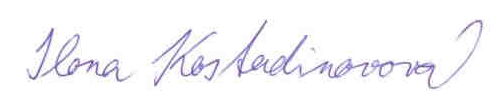 Ilona Kostadinovová